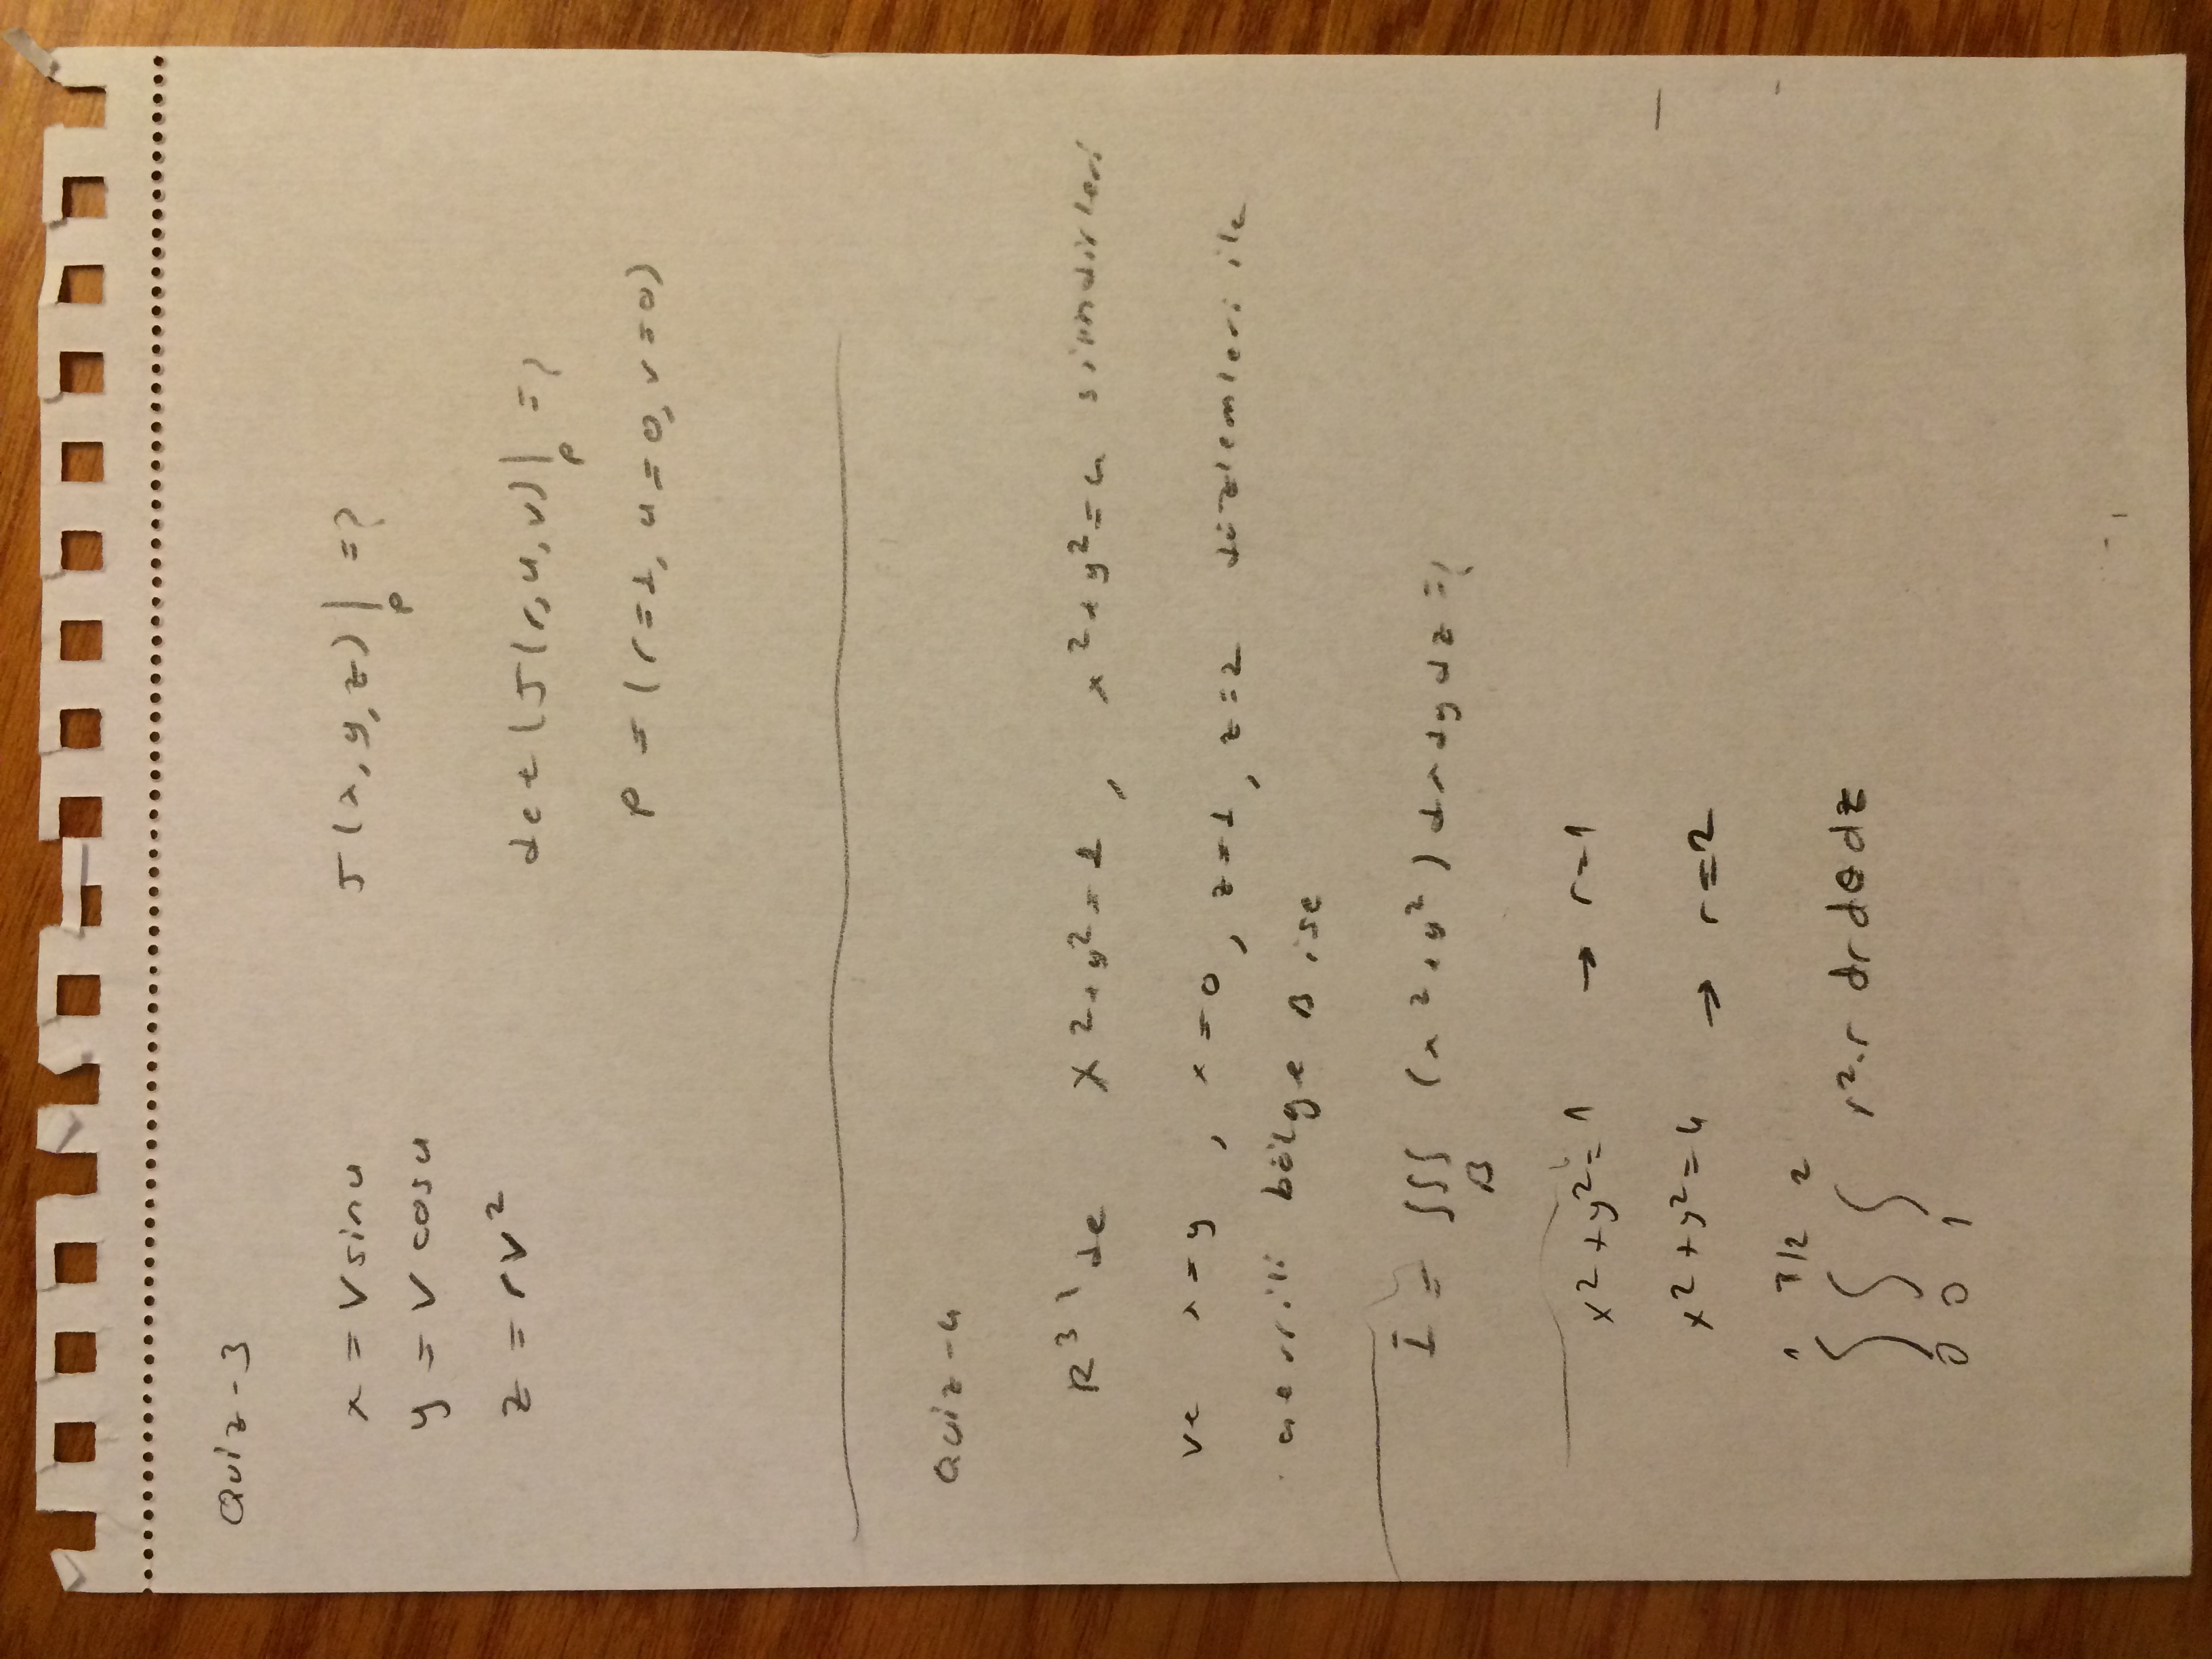 Quiz - 3
x = V sinu
J (x, y, z) |p = ?
y = V cosu
z = rv²
det (J(r, u, v)|p = ?
P = (r=1, u=0, v=0)
Quiz - 4
R³ 'de x²+y²=1 , x²+y²=4 silindirleri
ve x=y , x=0 , z=1 , z=2 düzlemleri ile
bölge B ise
I = ∫∫∫B (x²+y²) dx dy dz = ?
x²+y²=1 → r=1
x²+y²=4 → r=2
∫₀¹ ∫₀^π/2 ∫₁² r².r dr dθ dz